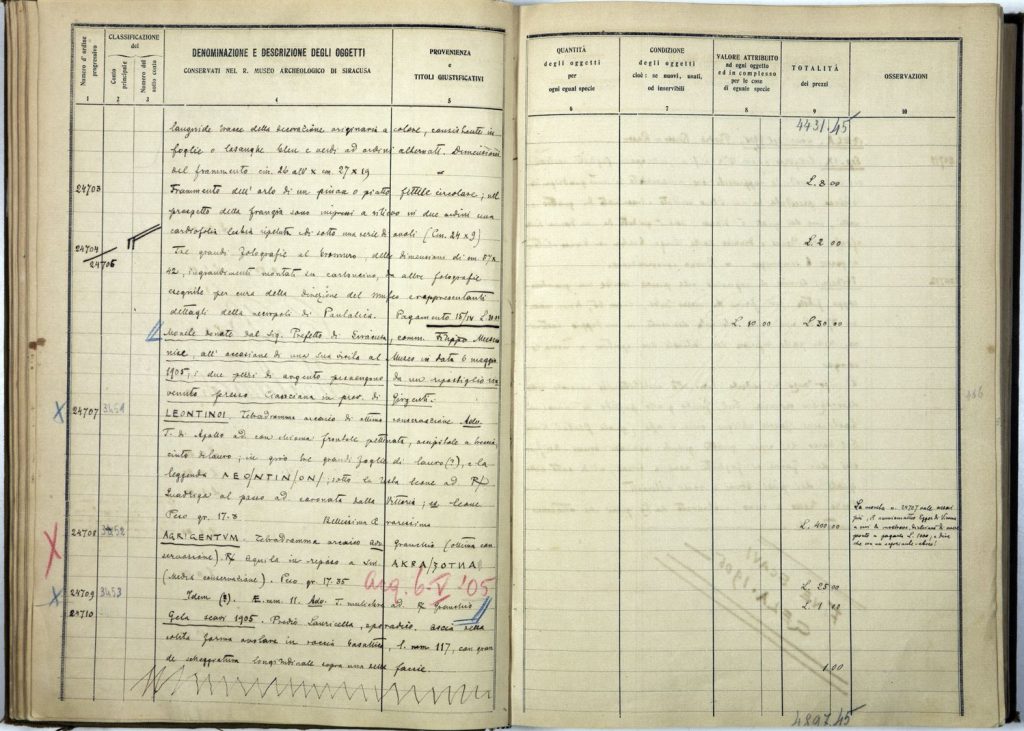 Numero d'ordine progressivo
CLASSIFICAZIONE del
Conto principale
Numero del sotto conto
DENOMINAZIONE E DESCRIZIONE DEGLI OGGETTI
CONSERVATI NEL R. MUSEO ARCHEOLOGICO DI SIRACUSA
PROVENIENZA
e
TITOLI GIUSTIFICATIVI
1 2 3 4 5
tracce della decorazione originaria a colore, consistente in
foglie o losanghe bleu e verdi ad ordini alternati. Dimensioni
del frammento cm. 26 all' x cm. 27 x 19
24703 Frammento dell' orlo di un pinax o piatto fittile circolare; nel
prospetto della frangia sono impressi a rilievo in due ordini una
lesbia ripetuta e di sotto una serie di ovoli (Cm. 24 x 9)
24704
24706
Tre grandi fotografie al bromuro, delle dimensioni di cm. 57 x
42, ingrandimenti montati su cartoncino, da altre fotografie
eseguite per cura della direzione del Museo e rappresentanti
dettagli della necropoli di Pantalica. Pagamento 15/IV L. 30.00
Monete donate dal Sig. Prefetto di Siracusa, comm. Filippo
all' occasione di una sua visita al Museo in data 6 maggio
1905; i due pezzi di argento provengono da un ripostiglio rin
venuto presso in prov. di Girgenti.
24707 3451 LEONTINOI. Tetradramma arcaico di ottima conservazione Ado.
T. di Apollo ad con chioma frontale pettinata, occipitale a treccia
cinto di lauro; in giro tre grandi foglie di lauro (?), e la
leggenda ΛΕΟ/ΝΤΙΝ/ΟΝ/; sotto la testa leone ad R/
Quadriga al passo ad coronata dalla Vittoria; es leone
Peso gr. 17.3 Bellissima e rarissima
24708 3452 AGRIGENTVM. Tetradramma arcaico ado Granchio (ottima con
servazione). R/ aquila in riposo a sin ΑΚΡΑ/
(Media conservazione). Peso gr. 17.35
Acq. 6-V '05
24709 3453 Idem (?). Æ. mm. 11. Ado. T. muliebre ad. R/ Granchio
24710 Gela scavi 1905. Predio Lauricella, sporadico. Ascia della
solita forma ovolare in roccia basaltica, l. mm 117, con gran
de scheggiatura longitudinale sopra una delle faccie.
QUANTITÀ
degli oggetti
per
ogni egual specie
CONDIZIONE
degli oggetti
cioè: se nuovi, usati,
od inservibili
VALORE ATTRIBUITO
ad ogni oggetto
ed in complesso
per le cose
di eguale specie
TOTALITÀ
dei prezzi
OSSERVAZIONI
6 7 8 9 10
4431.45
L. 3 00
L. 2 00
L. 10.00 L. 30.00
L. 400.00
La moneta n. 24707
il numismatico Egger di Vienna
L. 25.00
L. 1.00
1.00
4897.45